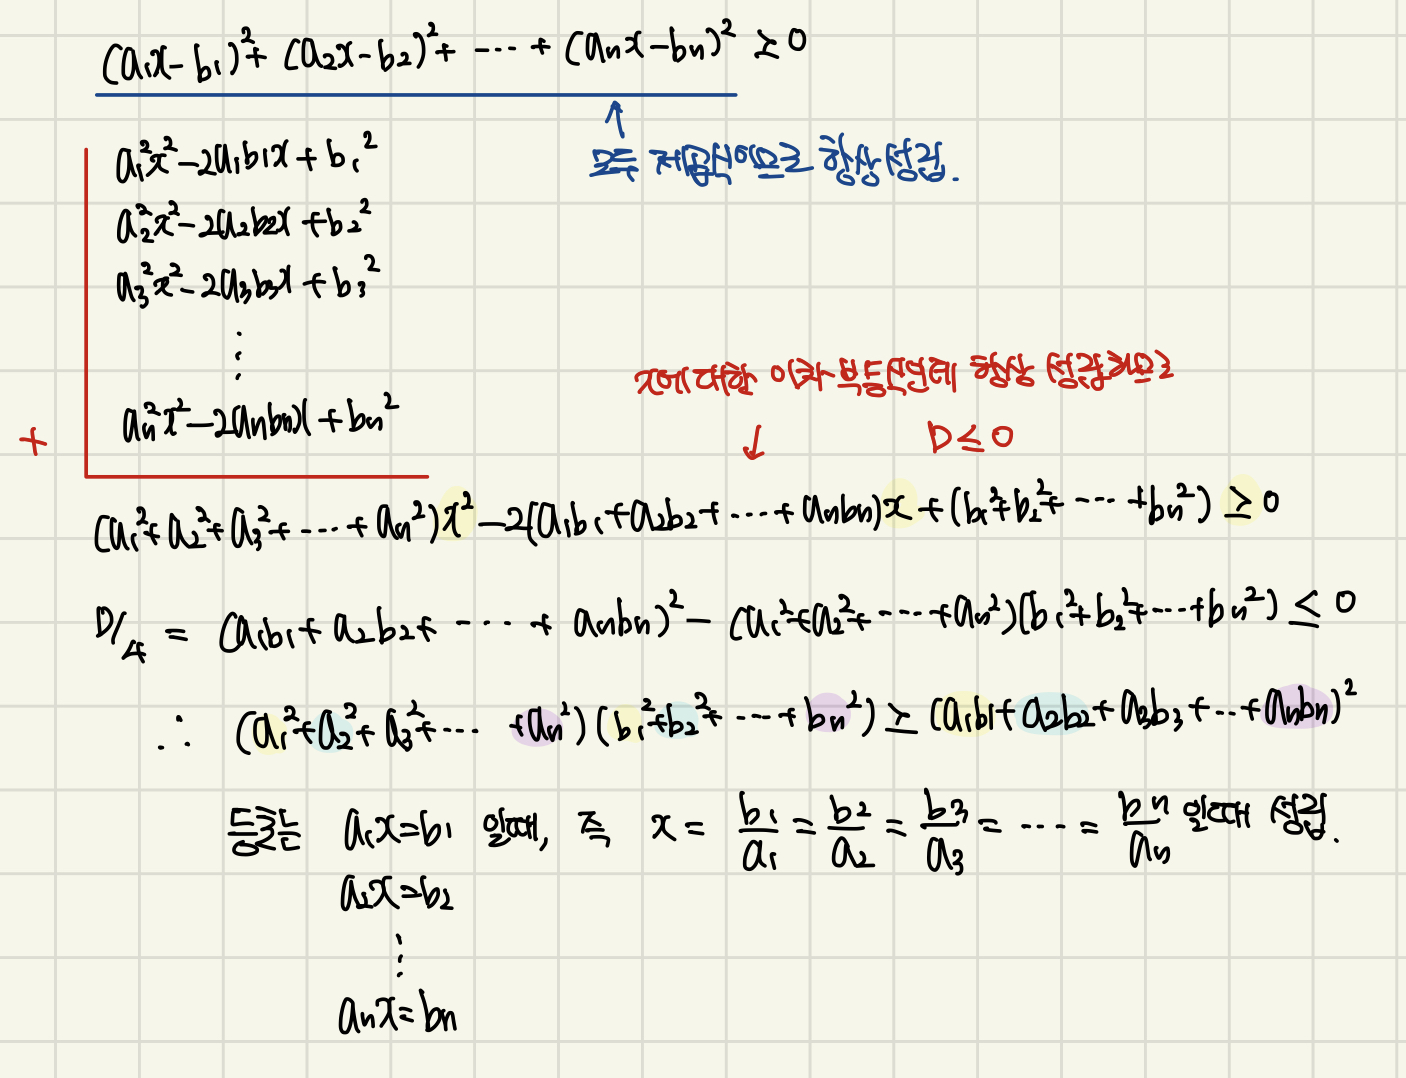 (a₁x-b₁)²+(a₂x-b₂)²+ ⋯ +(aₙx-bₙ)² ≥ 0
↑
모두 제곱식이므로 항상 성립.
a₁²x²-2a₁b₁x+b₁²
a₂²x²-2a₂b₂x+b₂²
a₃²x²-2a₃b₃x+b₃²
⋮
aₙ²x²-2aₙbₙx+bₙ²
+
x에 대한 이차부등식인데 항상 성립하므로
↓ D≤0
(a₁²+a₂²+a₃²+ ⋯ +aₙ²)x²-2(a₁b₁+a₂b₂+ ⋯ +aₙbₙ)x+(b₁²+b₂²+ ⋯ +bₙ²) ≥ 0
D/4 = (a₁b₁+a₂b₂+ ⋯ + aₙbₙ)²-(a₁²+a₂²+ ⋯ +aₙ²)(b₁²+b₂²+ ⋯ +bₙ²) ≤ 0
∴ (a₁²+a₂²+a₃²+ ⋯ +aₙ²)(b₁²+b₂²+ ⋯ +bₙ²) ≥ (a₁b₁+a₂b₂+a₃b₃+ ⋯ +aₙbₙ)²
등호는 a₁x=b₁ 일때, 즉 x = b₁/a₁ = b₂/a₂ = b₃/a₃ = ⋯ = bₙ/aₙ 일때 성립.
a₂x=b₂
⋮
aₙx=bₙ